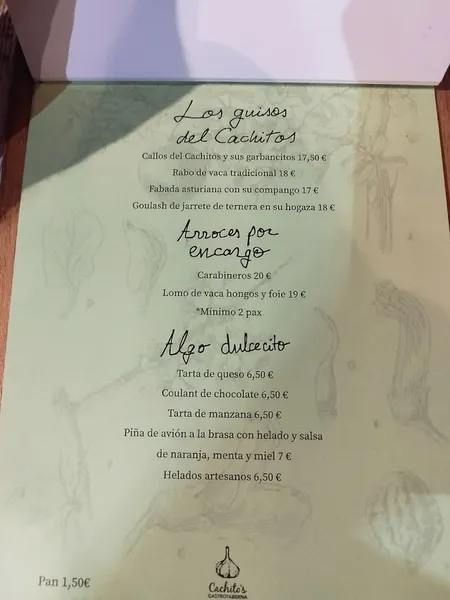 Los guisos
del Cachitos
Callos del Cachitos y sus garbancitos 17,50 €
Rabo de vaca tradicional 18 €
Fabada asturiana con su compango 17 €
Goulash de jarrete de ternera en su hogaza 18 €
Arroces por
encargo
Carabineros 20 €
Lomo de vaca hongos y foie 19 €
*Mínimo 2 pax
Algo dulcecito
Tarta de queso 6,50 €
Coulant de chocolate 6,50 €
Tarta de manzana 6,50 €
Piña de avión a la brasa con helado y salsa
de naranja, menta y miel 7 €
Helados artesanos 6,50 €
Pan 1,50€
Cachito's
GASTROTABERNA